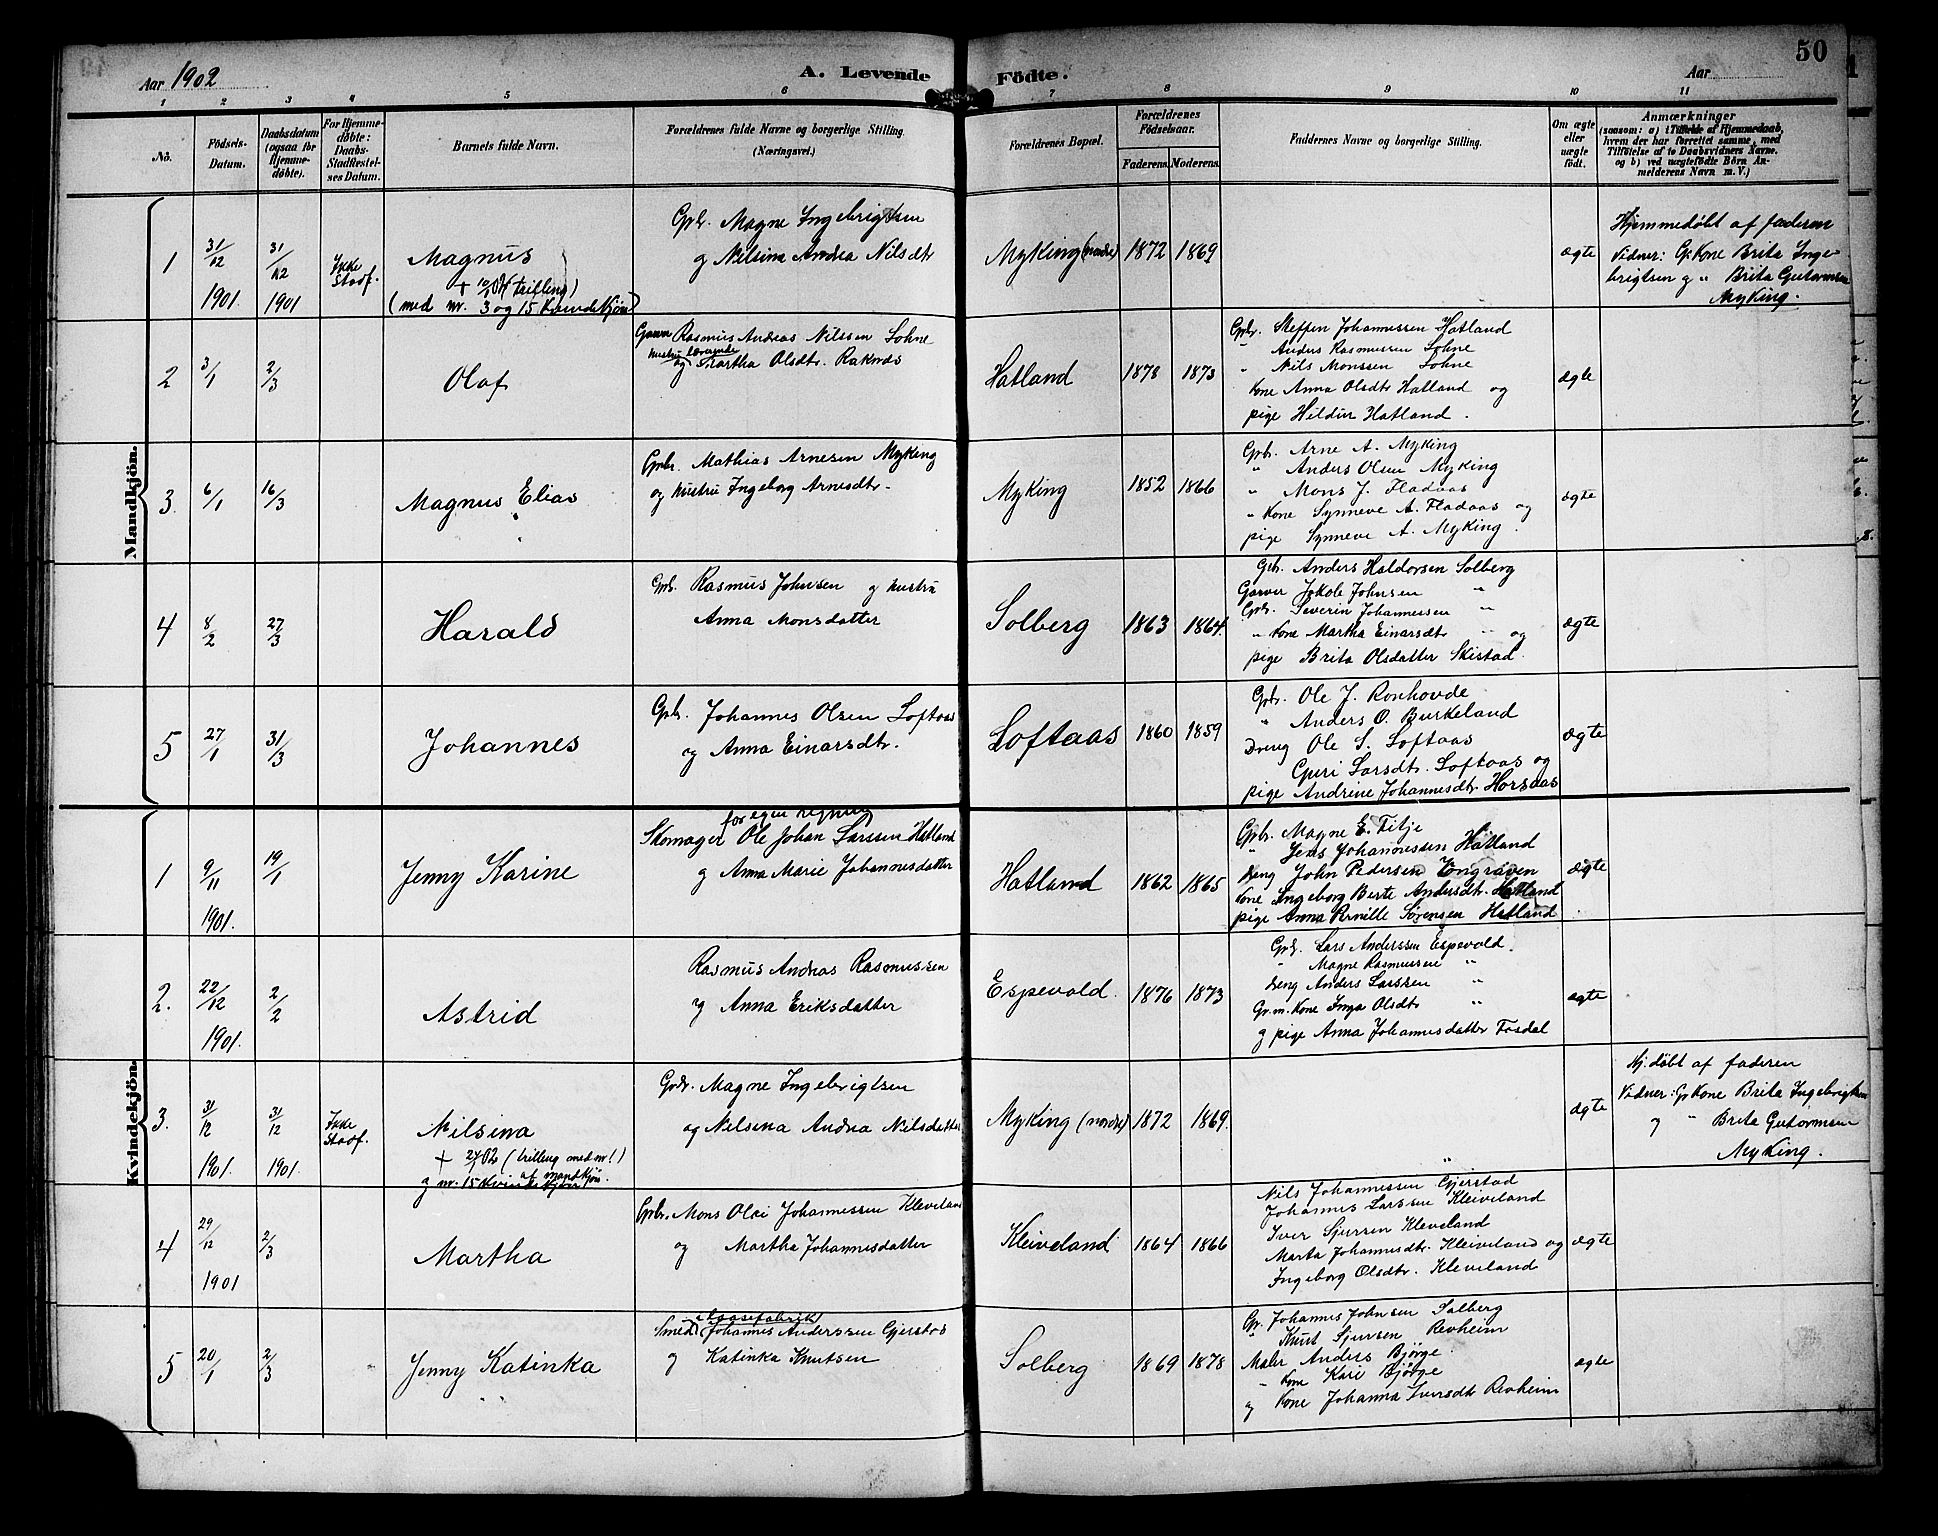 50
Aar 1902 A. Levende Födte. Aar
1 2 3 4 5 6 7 8 9 10 11
No.
Födsels-Datum.
Daabsdatum (ogsaa for Hjemme-döbte).
For Hjemme-döbte: Daabs-Stadfæstel-ses Datum.
Barnets fulde Navn.
Forældrenes fulde Navne og borgerlige Stilling.
(Næringsvei.)
Forældrenes Bopæl.
Forældrenes Födselsaar.
Faderens. Moderens.
Faddernes Navne og borgerlige Stilling.
Om ægte eller uægte födt.
Anmærkninger
(saasom: a) i Tilfælde af Hjemmedaab,
hvem der har forrettet samme, med
Tilföielse af to Daabsvidners Navne.
og b) ved uægtefödte Börn An-
melderens Navn m. V.)
Mandkjön.
1
31/12 1901
31/12 1901
Ikke Stadf.
Magnus
(trilling)
(med nr. 3 og 15 Kvindekjøn)
Gbr. Magne Ingebrigtsen
og Nilsina Andrea Nilsdtr
Myking (nordre) 1872 1869
ægte
Hjemmedøbt af faderen
Vidner: Gr. Kone Brita Inge-
brigtsen og " Brita Gutormsen
Myking.
2
3/1
2/3
Olaf
Garver Rasmus Andreas Nilssen Sohne
og hustru Martha Olsdtr. Raknes
Hatland 1878 1873
Gbr. Steffen Johannessen Hatland
" Anders Rasmussen Sohne
" Nils Monssen Sohne
Kone Anna Olsdtr Hatland og
pige Hildur Hatland.
ægte
3
6/1
16/3
Magnus Elias
Gbr. Mathias Arnesen Myking
og hustru Ingeborg Arnesdtr.
Myking 1852 1866
Gbr. Arne A. Myking
" Anders Olsen Myking
" Mons J. Fladaas
" Kone Synneve A. Fladaas og
pige Synneve A. Myking.
ægte
4
8/2
27/3
Harald
Gbr. Rasmus Johnsen og hustru
Anna Monsdatter
Solberg 1863 1864
Gbr. Anders Haldorsen Solberg
Garver Jakob Johnsen "
Gbr. Severin Johannessen "
" Kone Martha Einarsdtr " og
pige Brita Olsdatter Skistad.
ægte
5
27/1
31/3
Johannes
Gbr. Johannes Olsen Loftaas
og Anna Einarsdtr.
Loftaas 1860 1859
Gbr. Ole J. Ronhovde
" Anders O. Burkeland
Dreng Ole S. Loftaas
Guri Larsdtr. Loftaas og
pige Andrine Johannesdtr. Horsaas
ægte
Kvindekjön.
1
9/11 1901.
19/1
Jenny Karine
for egen regning
Skomager Ole Johan Larssen Hatland
og Anna Marie Johannesdatter
Hatland 1862 1865
Gbr. Magne E. Fitje
" Jens Johannessen Hatland
Dreng John Pedersen Kongraven
Kone Ingeborg Berte Andersdtr. Hatland
pige Anna Pernille Sørensen Hatland
ægte
2.
22/12 1901.
2/2
Astrid
Rasmus Andreas Rasmussen
og Anna Eriksdatter
Espevold. 1876 1873
Gbr. Lars Anderssen Espevold.
" Magne Rasmussen "
dreng Anders Larssen "
Gr. m. Kone Inga Olsdtr "
og pige Anna Johannesdatter Fosdal
ægte
3.
31/12 1901.
31/12 1901.
Ikke Stadf.
Nilsina
(trilling med nr 1)
af mandkjøn.
og nr. 15 Kvindekjøn
Gbr. Magne Ingebrigtsen
og Nelsina Andrea Nilsdatter
Myking (nordre) 1872 1869.
ægte
Hj. døbt af faderen
Vidner: Gr Kone Brita Ingebrigtsen
og " Brita Gutormsen
Myking.
4
29/12 1901
2/3
Martha
Gbr. Mons Olai Johannessen Kleveland
og Martha Johannesdatter
Kleiveland 1864 1866
Nils Johannessen Gjerstad
Johannes Larssen Kleiveland
Iver Sjursen Kleveland
Marta Johannesdtr. Kleiveland og
Ingeborg Olsdtr. Kleveland
ægte
5
20/1
2/3
Jenny Katinka
Smed Johannes Anderssen Gjerstad
og Katinka Knutsen
Solberg 1869 1878
Gr. Johannes Johnsen Solberg
" Knut Sjursen Revheim
Maler Anders Bjørge.
" Kone Kari Bjørge
og Kone Johanna Iversdtr Revheim
ægte